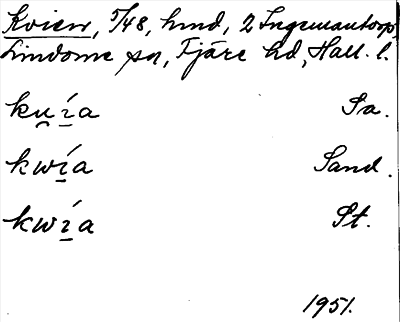 Kvien, 5/48, hmd, 2 Ingemantorp,
Lindome sn, Fjäre hd, Hall. l.
ku̯í̱a Sa.
kwí̱a Sand.
kwí̱a St.
1951.